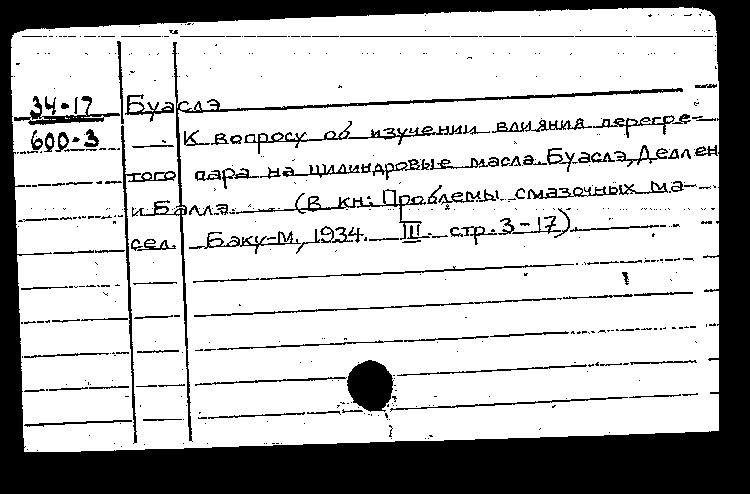 34-17 Буаслэ
600-3 К вопросу об изучении влияния перегре-
того пара на цилиндровые масла. Буаслэ, Деллен
и Баллэ. (В кн: Проблемы смазочных ма-
сел. Баку-М., 1934. III. стр. 3-17).